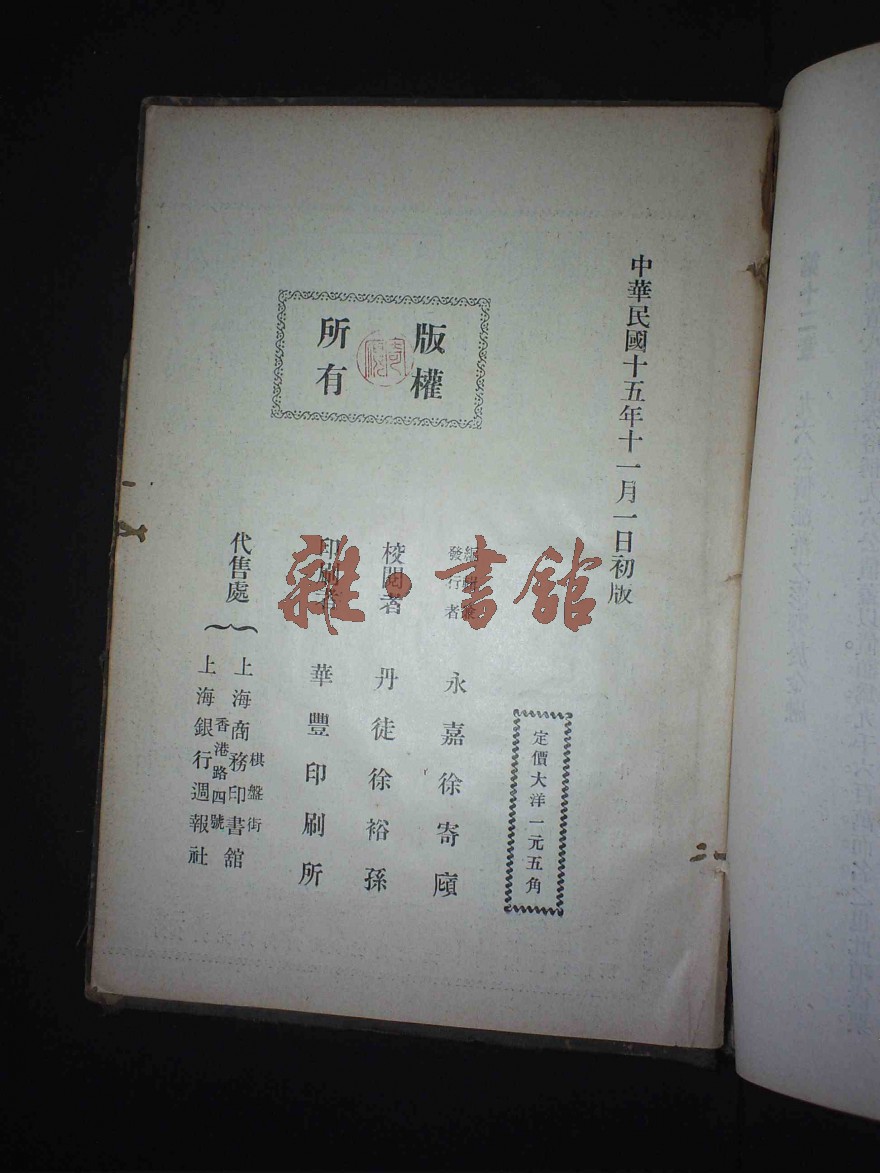 中華民國十五年十一月一日初版
版權
所有
定價大洋一元五角
發行者
永嘉徐寄廎
校閱者 丹徒徐裕孫
印刷者 華豐印刷所
代售處
棋盤街
上海商務印書館
香港路四號
上海銀行週報社
雜·書館